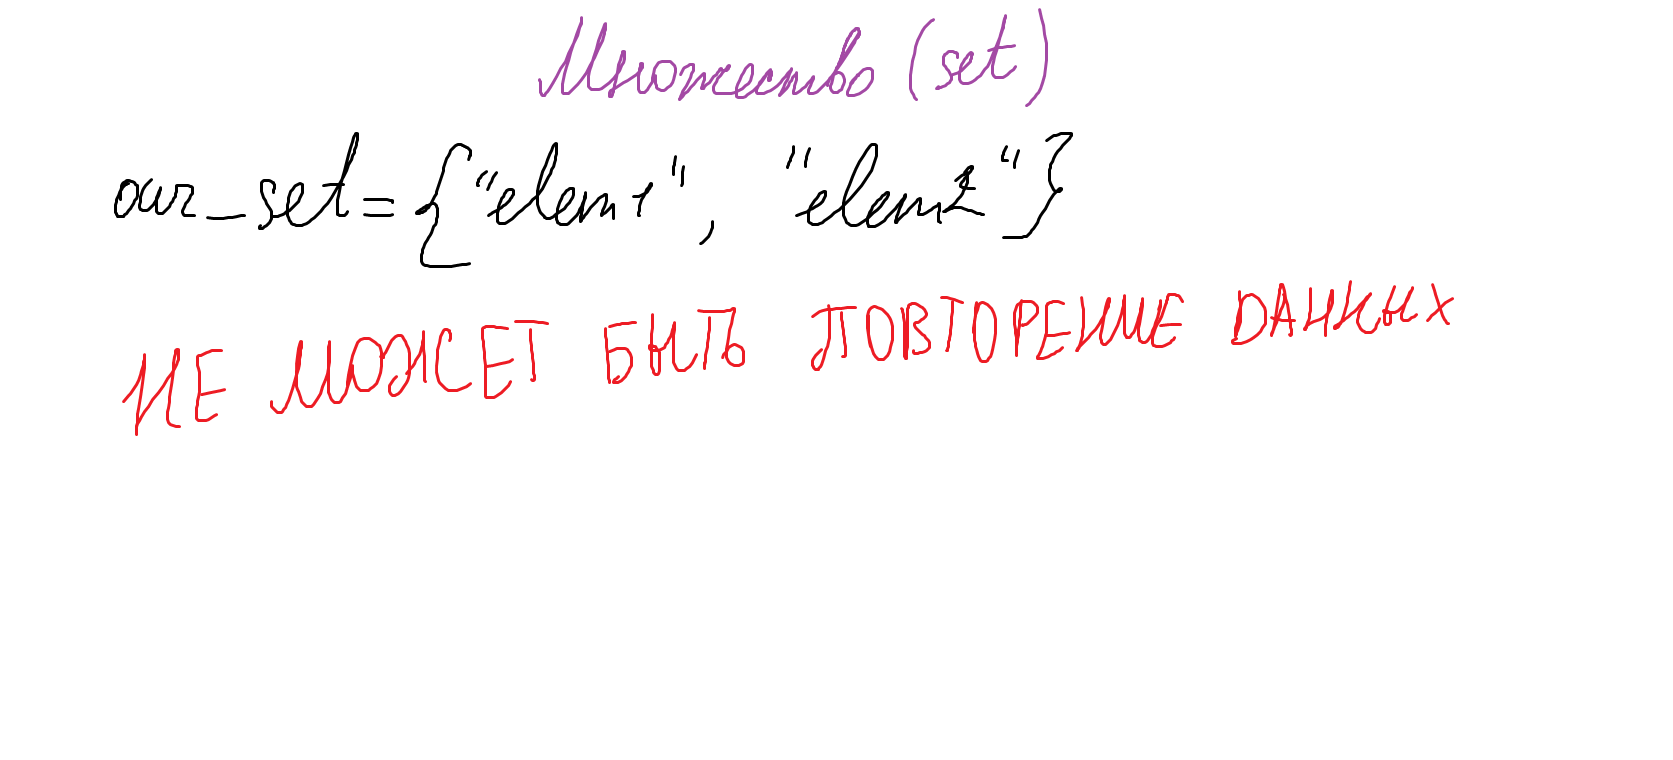 Множество (set)
our_set={"elem1", "elem2"}
НЕ МОЖЕТ БЫТЬ ПОВТОРЕНИЕ ДАННЫХ